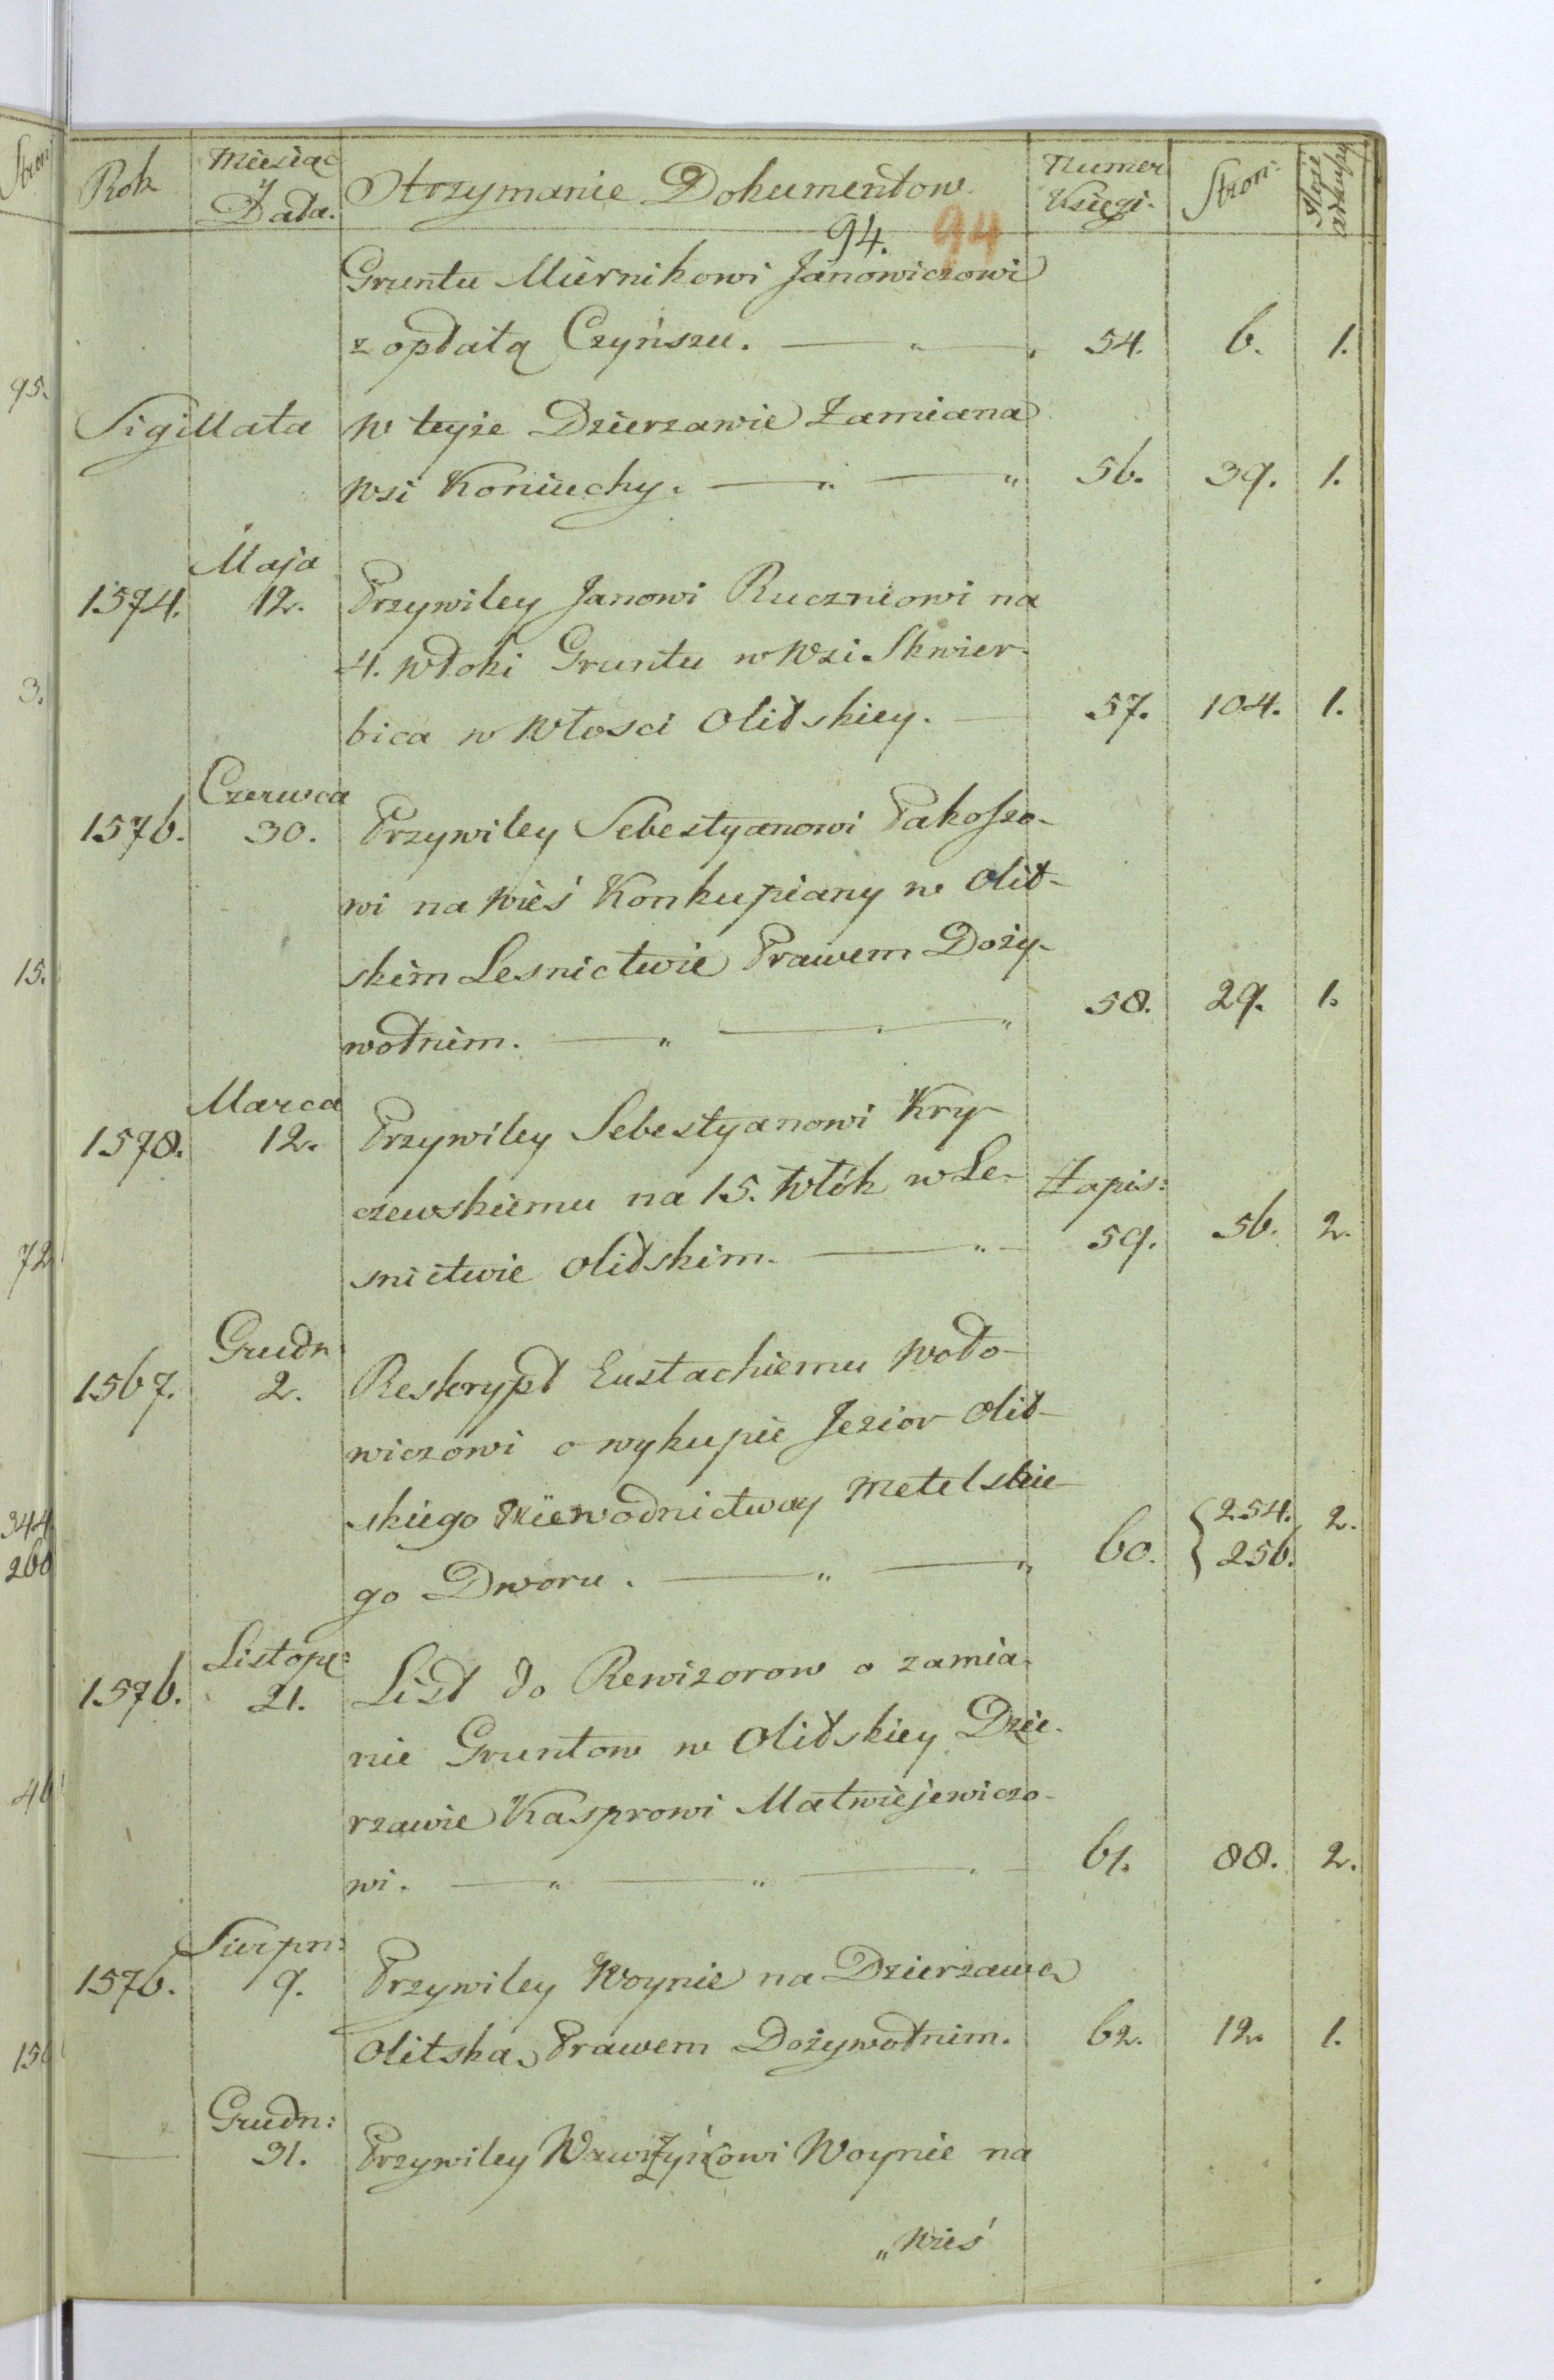 Stron:
Rok Miesiąc y Data. Otrzymanie Dokumentow. Numer Księgi. Stron:
94. 94
Gruntu Miernikowi Janowiczowi
z opłatą Czyńszu. — „ — 54. 6. 1.
95.
Sigillata w teyże Dzierzawie Zamiana
wsi Koniuchy. — „ — „ 56. 39. 1.
Maja
1574. 12. Przywiley Janowi Ruczniowi na
4. włoki Gruntu w wsi Skwier-
3.
bica w włosci Olitskiey. — 57. 104. 1.
Czerwca
1576. 30. Przywiley Sebestyanowi Pakoszo-
wi na wieś Konkupiany w Olit-
skim Lesnictwie Prawem Doży-
15.
wotnim. — „ — „ 58. 29. 1.
Marca
1578. 12. Przywiley Sebestyanowi Kry-
czewskiemu na 15. włók w Le- Zapis:
snictwie Olitskim. — „ — 59. 56. 2.
72
Grudn:
1567. 2. Reskrypt Eustachiemu Woło-
wiczowi o wykupie Jezior Olit-
skiego y Metelskie-
344 260
go Dworu. — „ — „ 60. {254. 256. 2.
Listop:
1576. 21. List do Rewizorow o zamia-
nie Gruntow w Olitskiey Dzie-
46
rzawie Kasprowi Matwiejewiczo-
wi. — „ — „ — 61. 88. 2.
Sierpn:
1576. 9. Przywiley Woynie na Dzierżawę
Olitską Prawem Dożywotnim. 62. 12. 1.
156
Grudn:
— 31. Przywiley Wawrzyńcowi Woynie na
„wieś